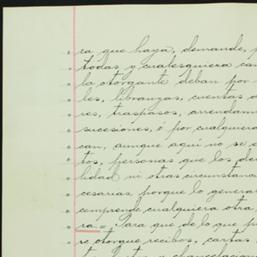 ra que haya, demande, p
todas y cualesquiera can
la otorgante deban por
les, libranzas, cuentas o
res, traspasos, arrendam
sucesiones, ó por cualquiera
can, aunque aquí no se e
tos, personas que los de
lidad ni otras circunstanc
cesarias, porque lo general
comprende cualquiera otra
ra=. Para que de lo que p
se otorque recibos, cartas